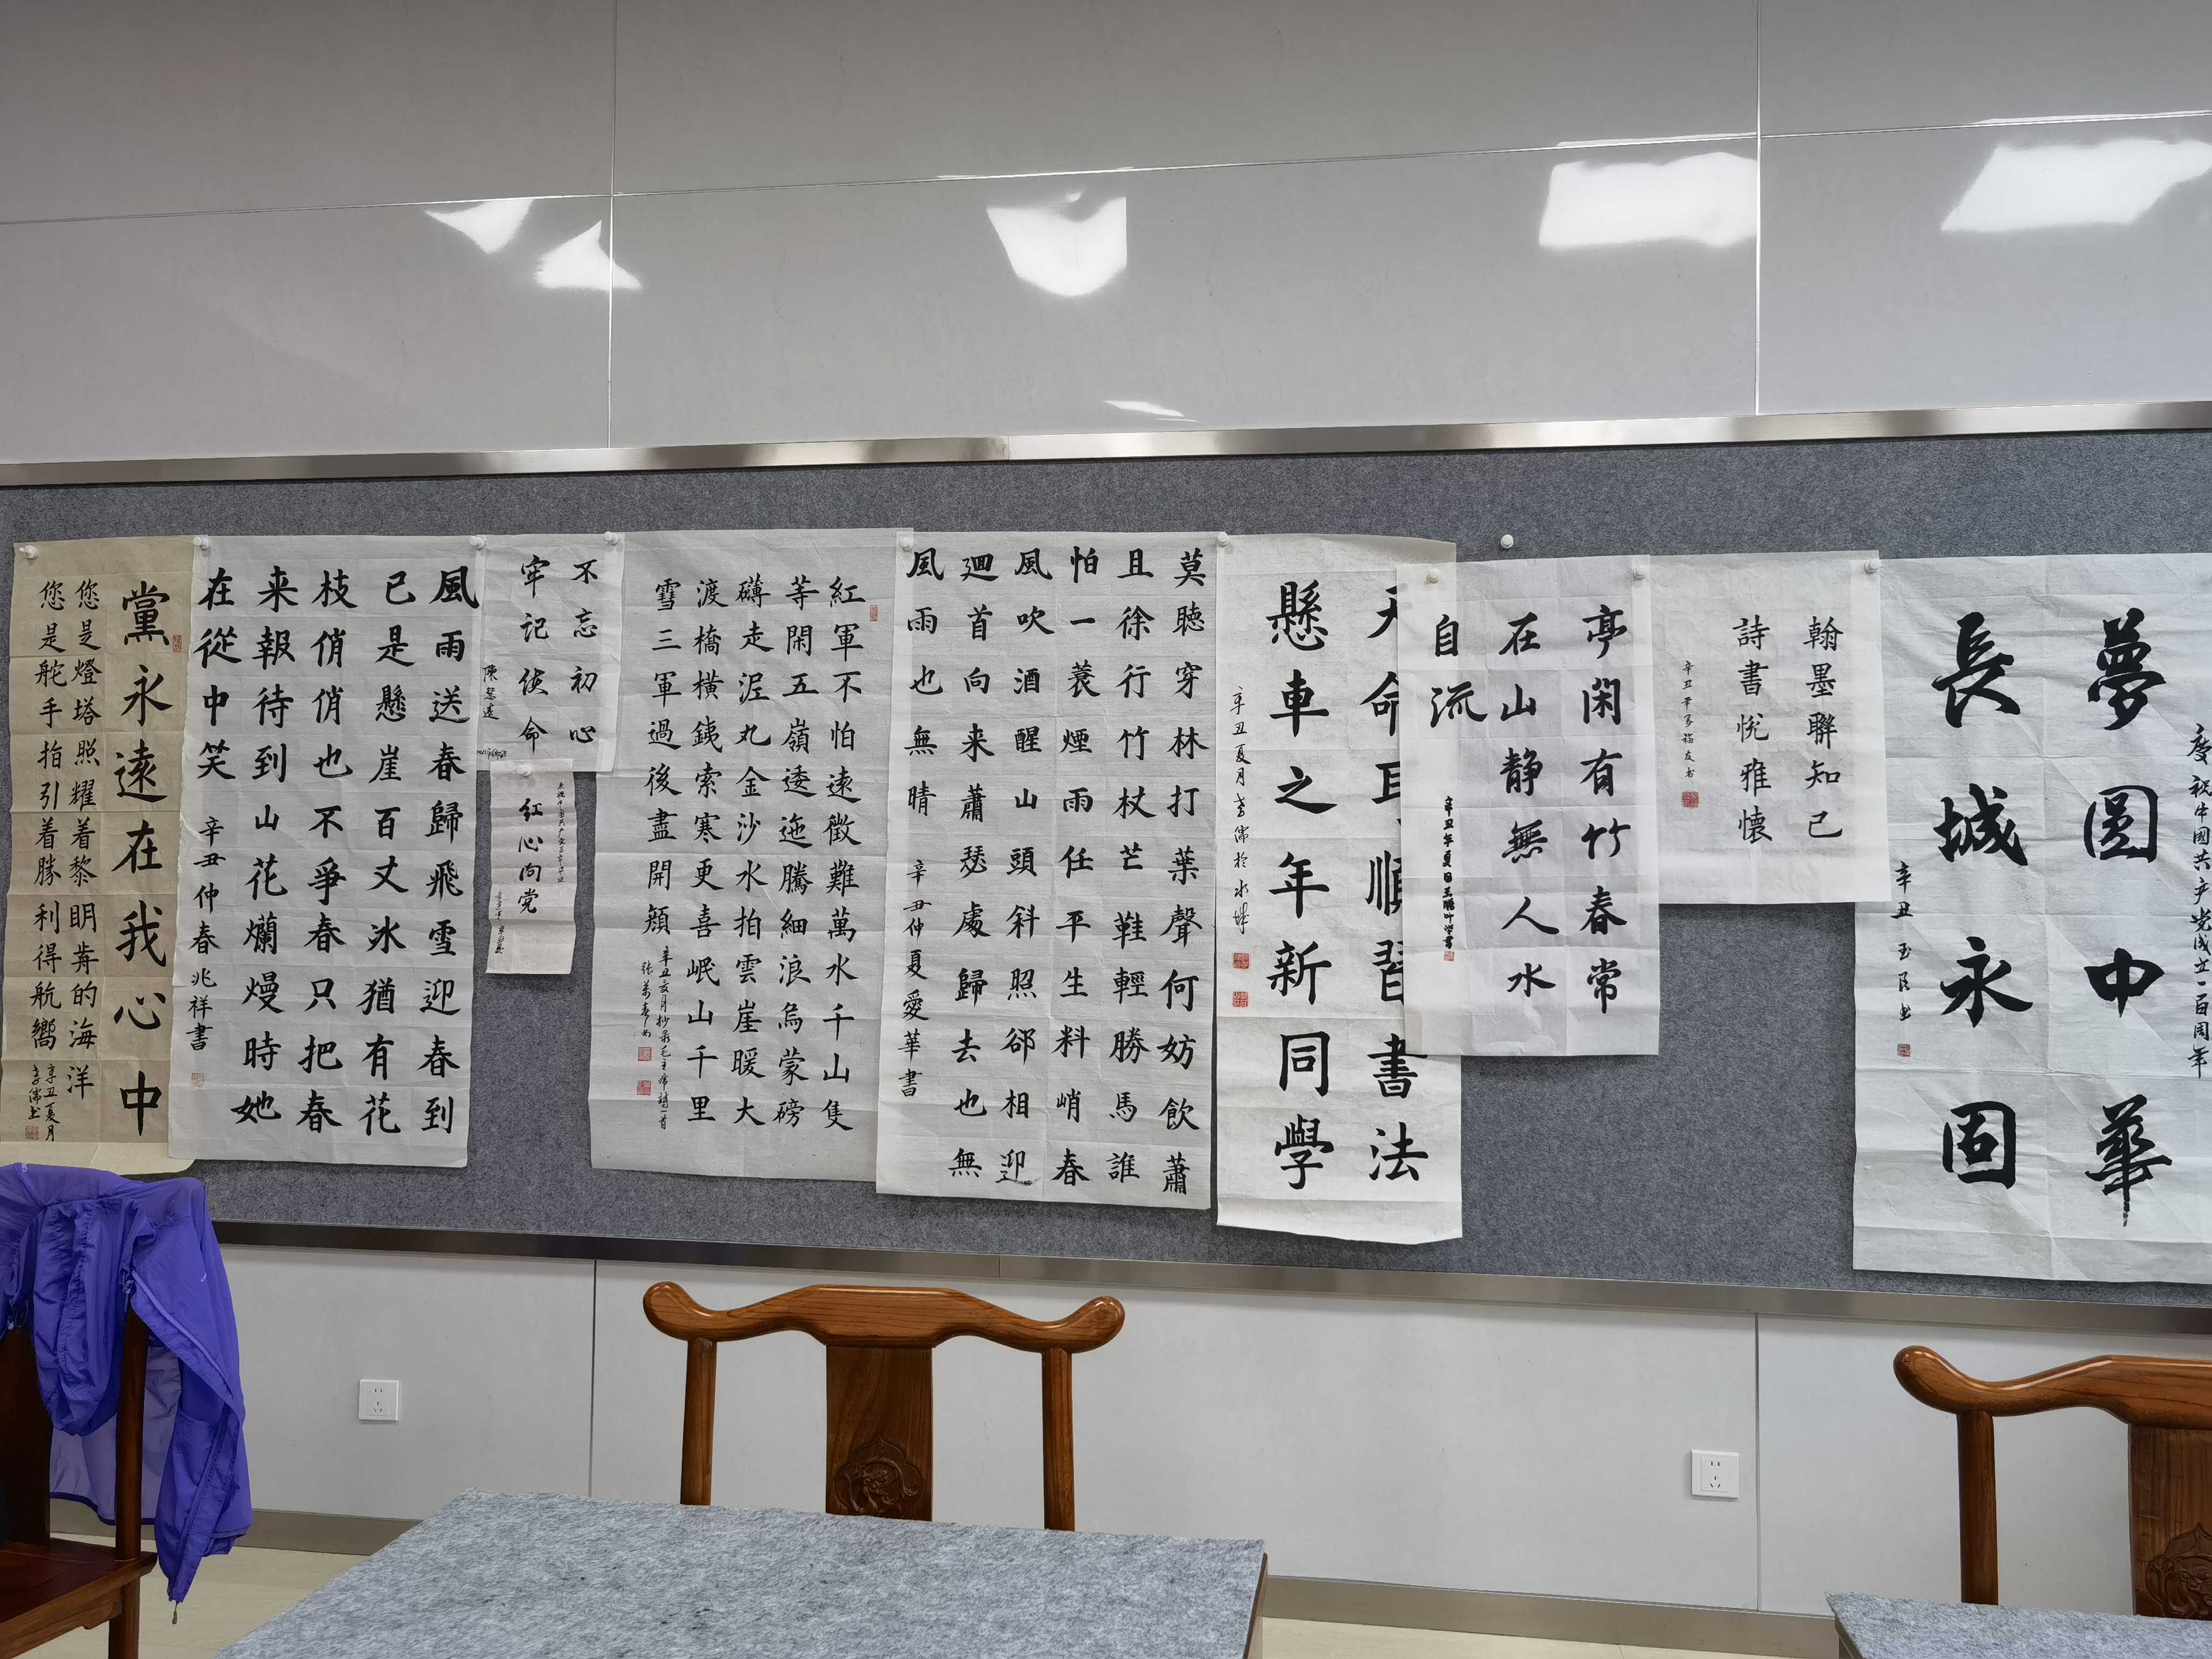 黨永遠在我心中
您是燈塔照耀着黎明前的海洋
您是舵手指引着勝利得航嚮
辛丑夏月
孝儒书
風雨送春歸飛雪迎春到
已是懸崖百丈冰猶有花
枝俏俏也不爭春只把春
来報待到山花爛熳時她
在從中笑 辛丑仲春兆祥書
不忘初心
牢记使命
红心向党
紅軍不怕遠徵難萬水千山隻
等閑五嶺逶迤騰細浪烏蒙磅
礴走泥丸金沙水拍雲崖暖大
渡橋横銕索寒更喜岷山千里
雪三軍過後盡開顔
辛丑夏月抄录毛主席詩一首
莫聽穿林打葉聲何妨飲蕭
且徐行竹杖芒鞋輕勝馬誰
怕一蓑煙雨任平生料峭春
風吹酒醒山頭斜照郤相迎
廻首向来蕭瑟處歸去也無
風雨也無晴 辛丑仲夏愛華書
命順習書法
懸車之年新同學
辛丑夏月孝儒於水城
亭閑有竹春常
在山静無人水
自流
翰墨聯知己
詩書悦雅懷
慶祝中國共产党成立一百周年
夢圓中華
長城永固
辛丑 玉